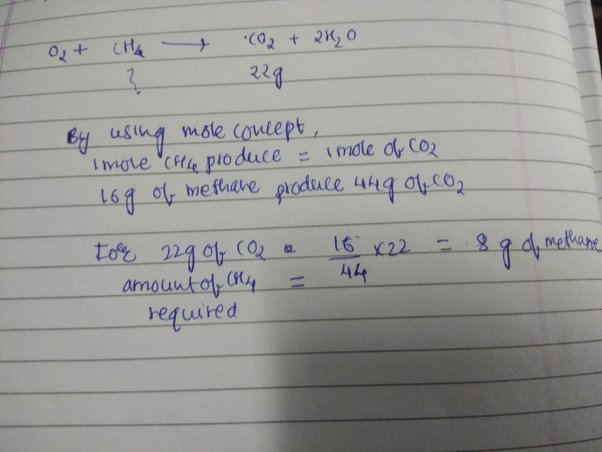 O2 + CH4 → CO2 + 2H2O
? 22g
By using mole concept,
1mole CH4 produce = 1mole of CO2
16g of methane produce 44g of CO2
For 22g of CO2 16/44 ×22 = 8 g of methane
amount of CH4 =
required